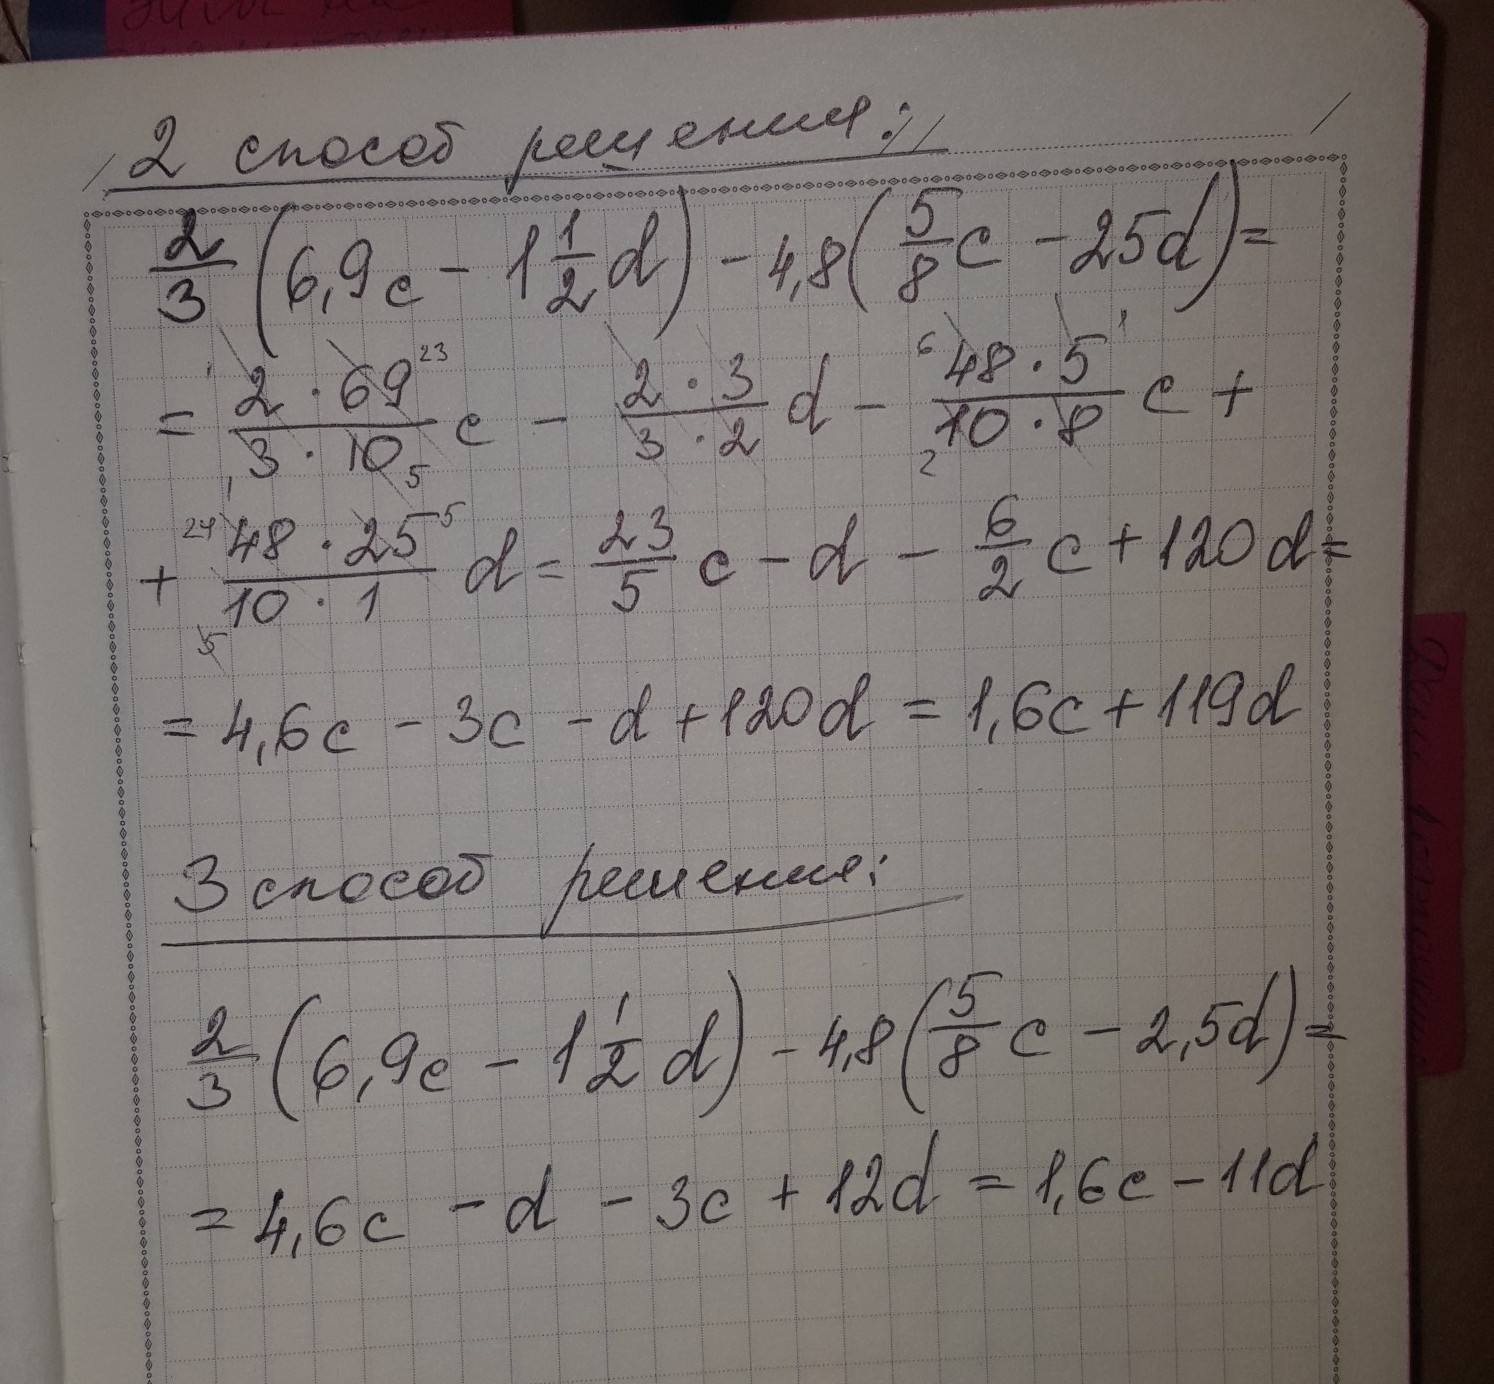 2 способ решения:
2/3 (6,9c - 1 1/2 d) - 4,8(5/8 c - 25d) =
= 2·69/3·10 c - 2·3/3·2 d - 48·5/10·8 c +
+ 48·25/10·1 d = 23/5 c - d - 6/2 c + 120d =
= 4,6c - 3c - d + 120d = 1,6c + 119d
3 способ решения:
2/3 (6,9c - 1 1/2 d) - 4,8(5/8 c - 2,5d) =
= 4,6c - d - 3c + 12d = 1,6c - 11d